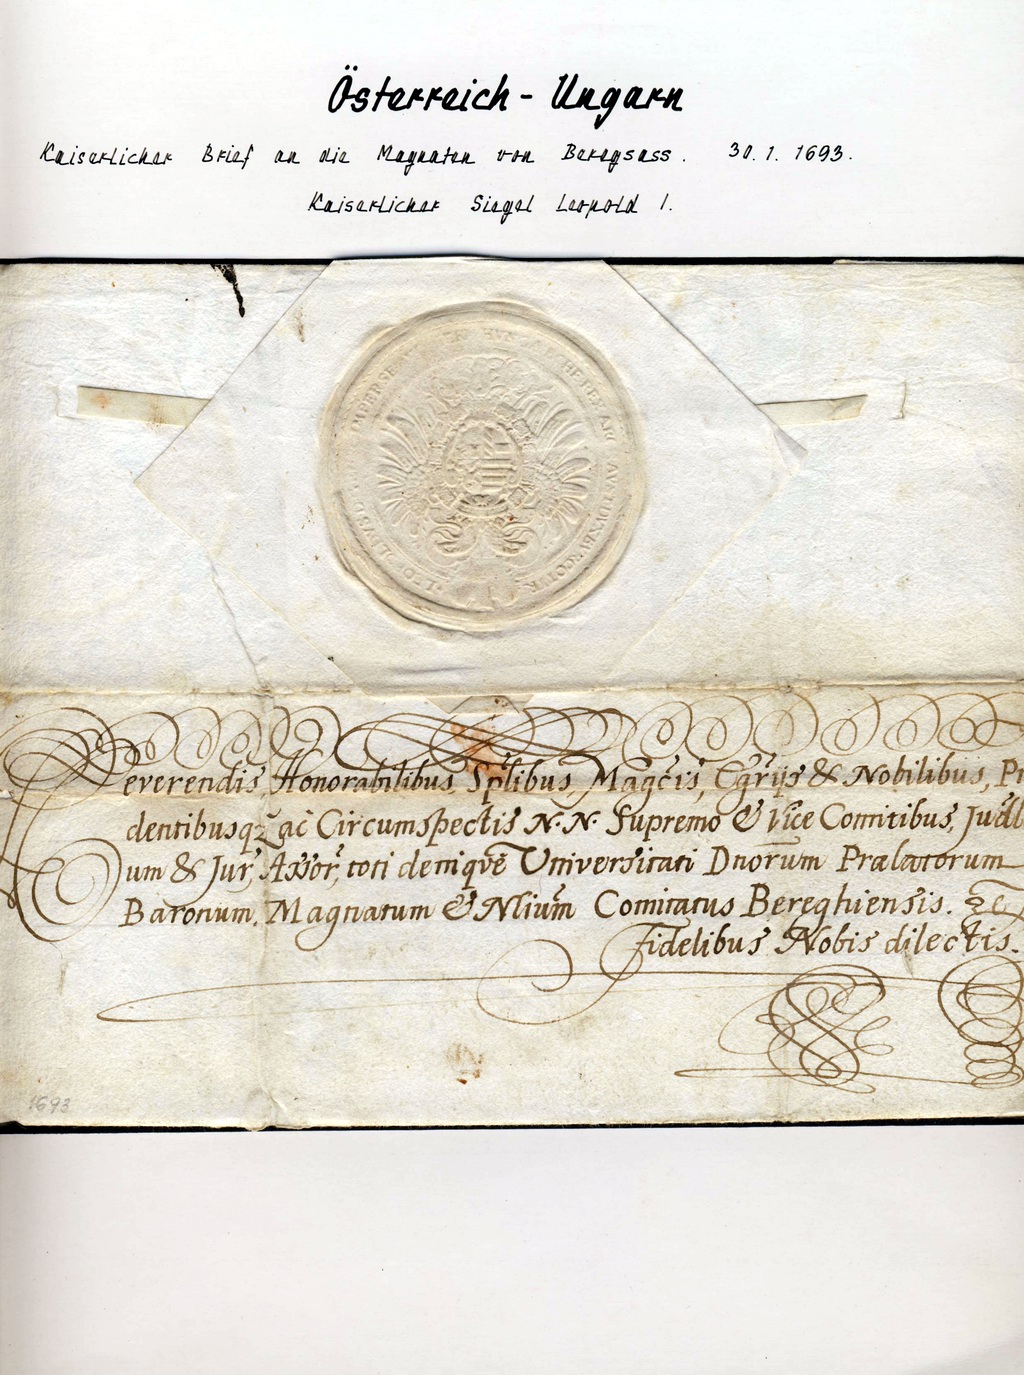 Österreich - Ungarn
Kaiserlicher Brief an die Magnaten von Beregsass. 30. 1. 1693.
Kaiserlicher Siegel Leopold I.
Reverendis, Honorabilibus, Splibus, Magcis, Egrijs & Nobilibus, Pr
dentibusq, ac Circumspectis N. N. Supremo & Vice Comitibus, Judl
um & Jur, Assor, toti deniqve Universitati Dnorum Prælatorum
Baronum, Magnatum & Nlium Comitatus Bereghiensis. &c
Fidelibus Nobis dilectis.
1693